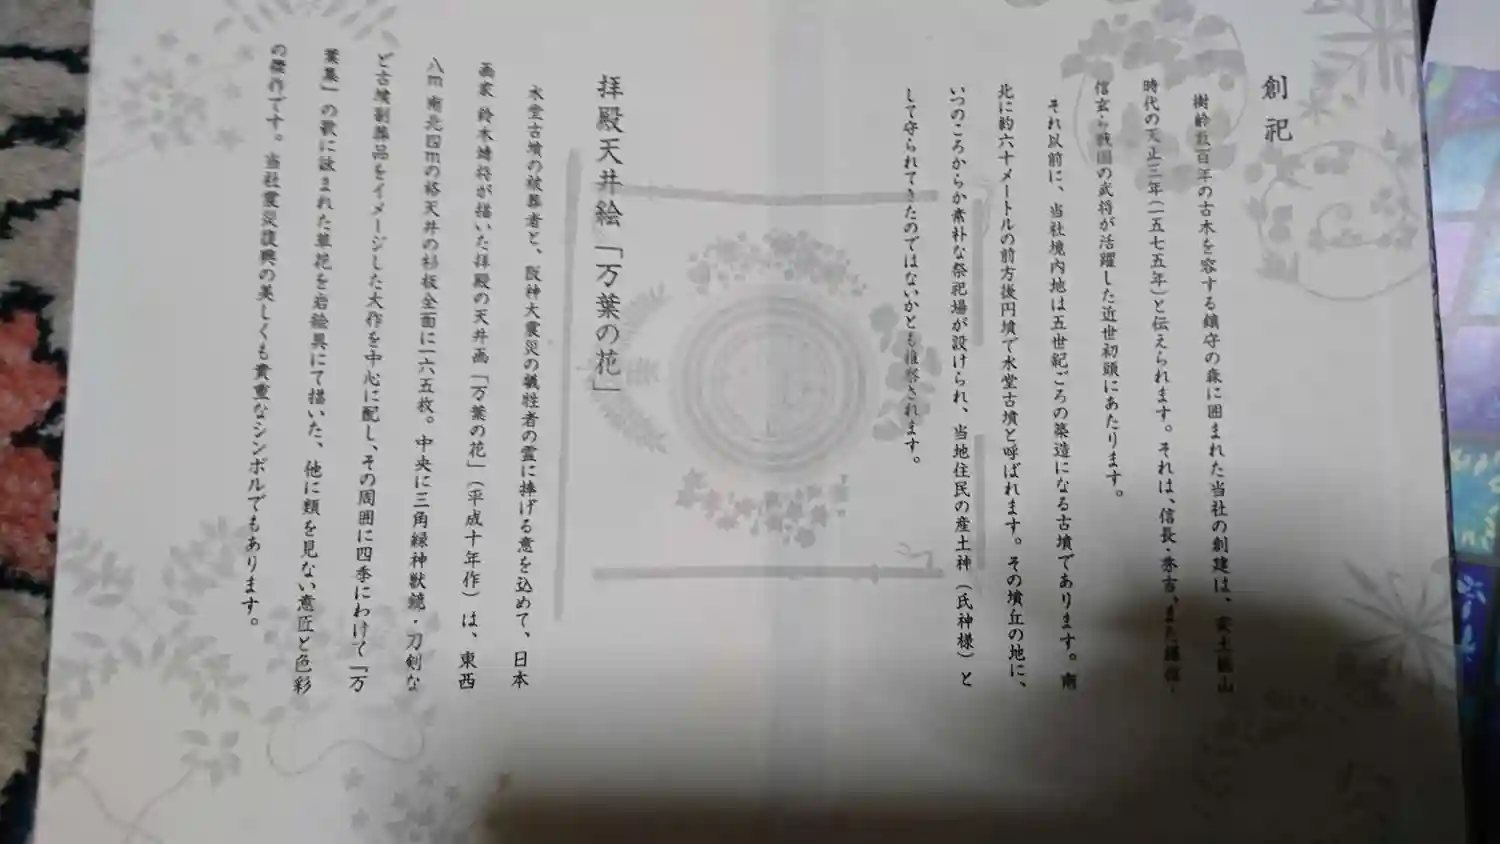 創祀
樹齢数百年の古木を容する鎮守の森に囲まれた当社の創建は、安土桃山
時代の天正三年（一五七五年）と伝えられます。それは、信長・秀吉、また謙信・
信玄ら戦国の武将が活躍した近世初頭にあたります。
それ以前に、当社境内地は五世紀ごろの築造になる古墳であります。南
北に約六十メートルの前方後円墳で水堂古墳と呼ばれます。その墳丘の地に、
いつのころからか素朴な祭祀場が設けられ、当地住民の産土神（氏神様）と
して守られてきたのではないかとも推察されます。
拝殿天井絵「万葉の花」
水堂古墳の被葬者と、阪神大震災の犠牲者の霊に捧げる意を込めて、日本
画家 鈴木靖将が描いた拝殿の天井画「万葉の花」（平成十年作）は、東西
八ｍ 南北四ｍの格天井の杉板全面に一六五枚。中央に三角縁神獣鏡・刀剣な
ど古墳副葬品をイメージした大作を中心に配し、その周囲に四季にわけて「万
葉集」の歌に詠まれた草花を岩絵具にて描いた、他に類を見ない意匠と色彩
の傑作です。当社震災復興の美しくも貴重なシンボルでもあります。